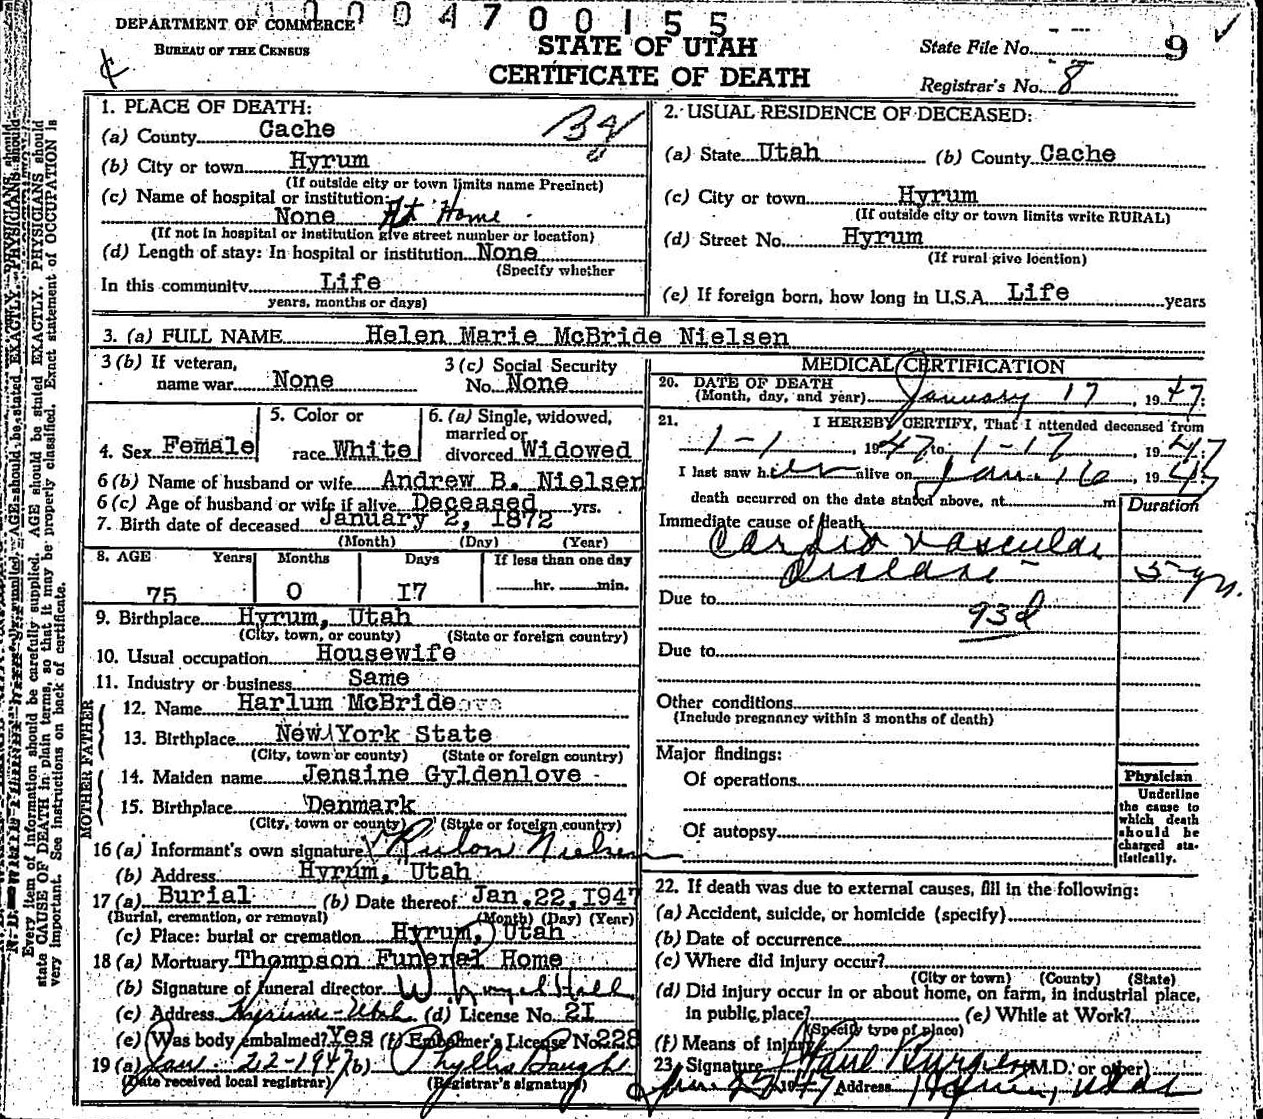 0004700155
DEPARTMENT OF COMMERCE
BUREAU OF THE CENSUS
STATE OF UTAH
CERTIFICATE OF DEATH
State File No. 9
Registrar's No. 8
1. PLACE OF DEATH:
(a) County Cache
(b) City or town Hyrum
(If outside city or town limits name Precinct)
(c) Name of hospital or institution:
None At Home
(If not in hospital or institution give street number or location)
(d) Length of stay: In hospital or institution None
(Specify whether
In this community Life
years, months or days)
2. USUAL RESIDENCE OF DECEASED:
(a) State Utah (b) County Cache
(c) City or town Hyrum
(If outside city or town limits write RURAL)
(d) Street No. Hyrum
(If rural give location)
(e) If foreign born, how long in U.S.A. Life years
3. (a) FULL NAME Helen Marie McBride Nielsen
3 (b) If veteran, name war None
3 (c) Social Security No. None
4. Sex Female
5. Color or race White
6. (a) Single, widowed, married or divorced Widowed
6 (b) Name of husband or wife Andrew B. Nielsen
6 (c) Age of husband or wife if alive Deceased yrs.
7. Birth date of deceased January 2, 1872
(Month) (Day) (Year)
8. AGE Years Months Days If less than one day
75 0 I7 hr. min.
9. Birthplace Hyrum, Utah
(City, town, or county) (State or foreign country)
10. Usual occupation Housewife
11. Industry or business Same
FATHER
12. Name Harlum McBride
13. Birthplace New York State
(City, town or county) (State or foreign country)
MOTHER
14. Maiden name Jensine Gyldenlove
15. Birthplace Denmark
(City, town or county) (State or foreign country)
16 (a) Informant's own signature Rulon Nielsen
(b) Address Hyrum, Utah
17 (a) Burial (b) Date thereof Jan.22,I947
(Burial, cremation, or removal) (Month) (Day) (Year)
(c) Place: burial or cremation Hyrum, Utah
18 (a) Mortuary Thompson Funeral Home
(b) Signature of funeral director W Hall
(c) Address Hyrum-Utah (d) License No. 2I
(e) Was body embalmed? Yes (f) Embalmer's License No. 228
19 (a) Jan. 22-1947 (b) Phyllis Baugh
(Date received local registrar) (Registrar's signature)
MEDICAL CERTIFICATION
20. DATE OF DEATH
(Month, day, and year) January 17, 1947.
21. I HEREBY CERTIFY, That I attended deceased from
1-1, 1947 to 1-17, 1947
I last saw her alive on Jan. 16, 1947
death occurred on the date stated above, at m
Duration
Immediate cause of death
Cardio vascular
Disease 5 yrs.
Due to
93d
Due to
Other conditions
(Include pregnancy within 3 months of death)
Major findings:
Of operations
Of autopsy
Physician
Underline the cause to which death should be charged statistically.
22. If death was due to external causes, fill in the following:
(a) Accident, suicide, or homicide (specify)
(b) Date of occurrence
(c) Where did injury occur?
(City or town) (County) (State)
(d) Did injury occur in or about home, on farm, in industrial place,
in public place? (e) While at Work?
(Specify type of place)
(f) Means of injury
23. Signature Paul (M.D. or other)
Jan 22 1947 Address Hyrum, Utah
Every item of information should be carefully supplied. AGE should be stated EXACTLY. PHYSICIANS should
state CAUSE OF DEATH in plain terms, so that it may be properly classified. Exact statement of OCCUPATION is
very important. See instructions on back of certificate.